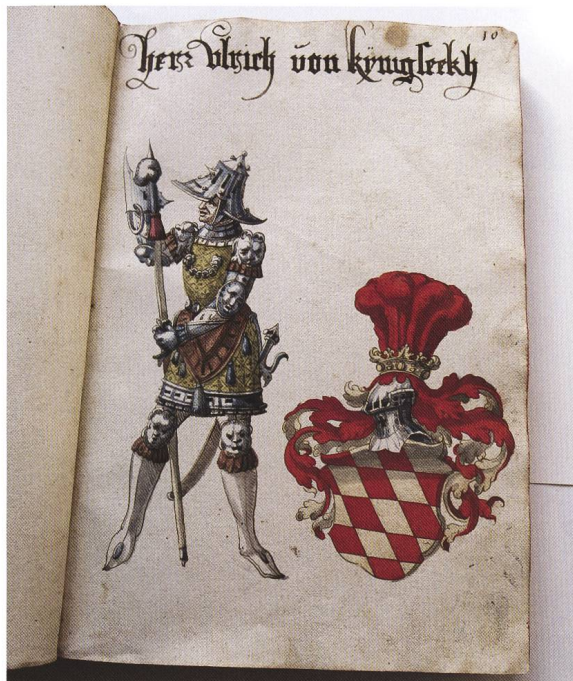 10
herr Vlrich von kӱnigseekh